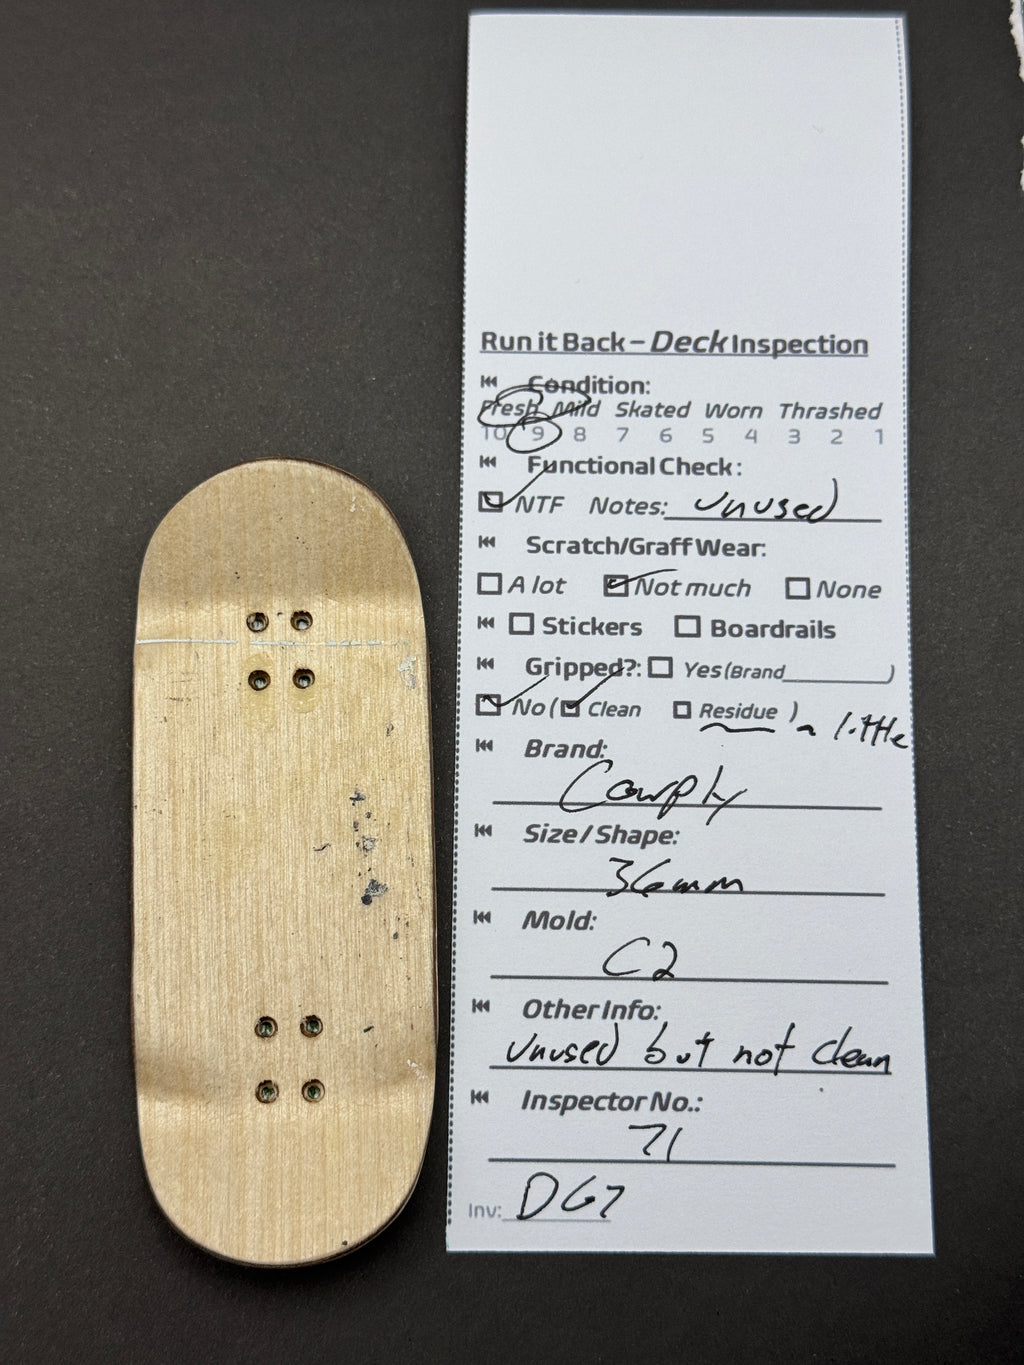 Run it Back – Deck Inspection
Condition:
Fresh Mild Skated Worn Thrashed
10 9 8 7 6 5 4 3 2 1
Functional Check:
NTF Notes: Unused
Scratch/Graff Wear:
A lot Not much None
Stickers Boardrails
Gripped?: Yes (Brand__________)
No ( Clean Residue ) ~ little
Brand:
Cowply
Size / Shape:
36mm
Mold:
C2
Other Info:
Unused but not clean
Inspector No.:
71
Inv: DG7